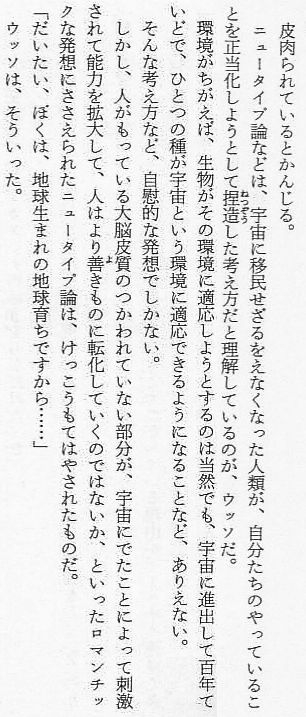 皮肉られているとかんじる。
ニュータイプ論などは、宇宙に移民せざるをえなくなった人類が、自分たちのやっているこ
とを正当化しようとして捏造した考え方だと理解しているのが、ウッソだ。
環境がちがえば、生物がその環境に適応しようとするのは当然でも、宇宙に進出して百年て
いどで、ひとつの種が宇宙という環境に適応できるようになることなど、ありえない。
そんな考え方など、自慰的な発想でしかない。
しかし、人がもっている大脳皮質のつかわれていない部分が、宇宙にでたことによって刺激
されて能力を拡大して、人はより善きものに転化していくのではないか、といったロマンチッ
クな発想にささえられたニュータイプ論は、けっこうもてはやされたものだ。
「だいたい、ぼくは、地球生まれの地球育ちですから……」
ウッソは、そういった。